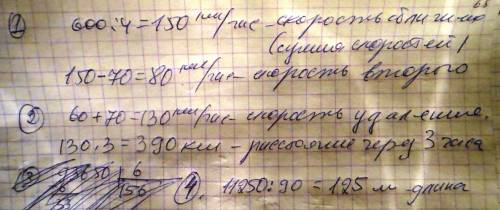 ① 600:4=150 км/час – скорость сближ-ия
(сумма скоростей)
150-70=80 км/час – скорость второго
② 60+70=130 км/час – скорость удаления.
130·3=390 км – расстояние через 3 часа
③ 6
156
④ 11250:90=125 м длина